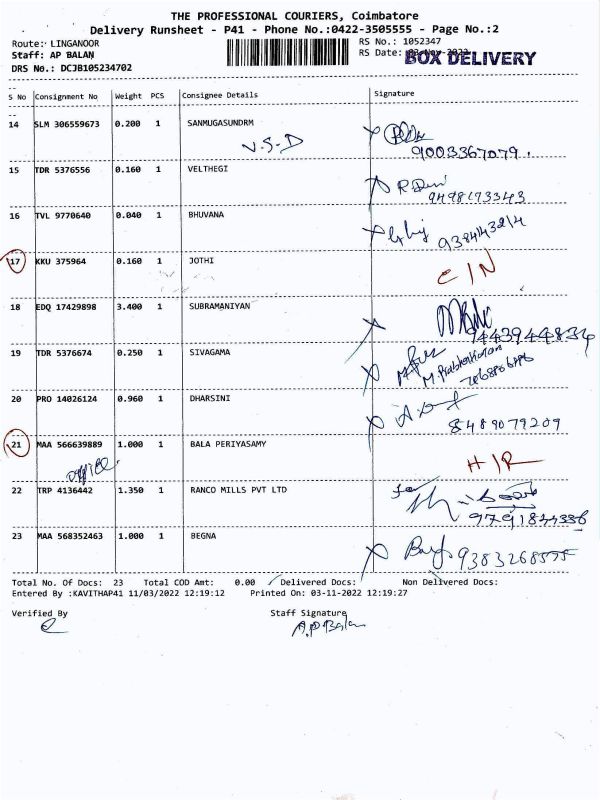 THE PROFESSIONAL COURIERS, Coimbatore
Delivery Runsheet - P41 - Phone No.:0422-3505555 - Page No.:2
Route: LINGANOOR RS No.: 1052347
Staff: AP BALAN RS Date: 03-Nov-2022 BOX DELIVERY
DRS No.: DCJB105234702
S No Consignment No Weight PCS Consignee Details Signature
14 SLM 306559673 0.200 1 SANMUGASUNDRM
V.S-D 9003367079.
15 TDR 5376556 0.160 1 VELTHEGI
R Devi
9498193343
16 TVL 9770640 0.040 1 BHUVANA
17 KKU 375964 0.160 1 JOTHI C/N
18 EDQ 17429898 3.400 1 SUBRAMANIYAN
9443944834
19 TDR 5376674 0.250 1 SIVAGAMA
M. Prabhakaran
20 PRO 14026124 0.960 1 DHARSINI
8489079209
21 MAA 566639889 1.000 1 BALA PERIYASAMY
office H/R
22 TRP 4136442 1.350 1 RANCO MILLS PVT LTD
for
9791844336
23 MAA 568352463 1.000 1 BEGNA
9383268555
Total No. Of Docs: 23 Total COD Amt: 0.00 Delivered Docs: Non Delivered Docs:
Entered By :KAVITHAP41 11/03/2022 12:19:12 Printed On: 03-11-2022 12:19:27
Verified By Staff Signature
A.P Balan